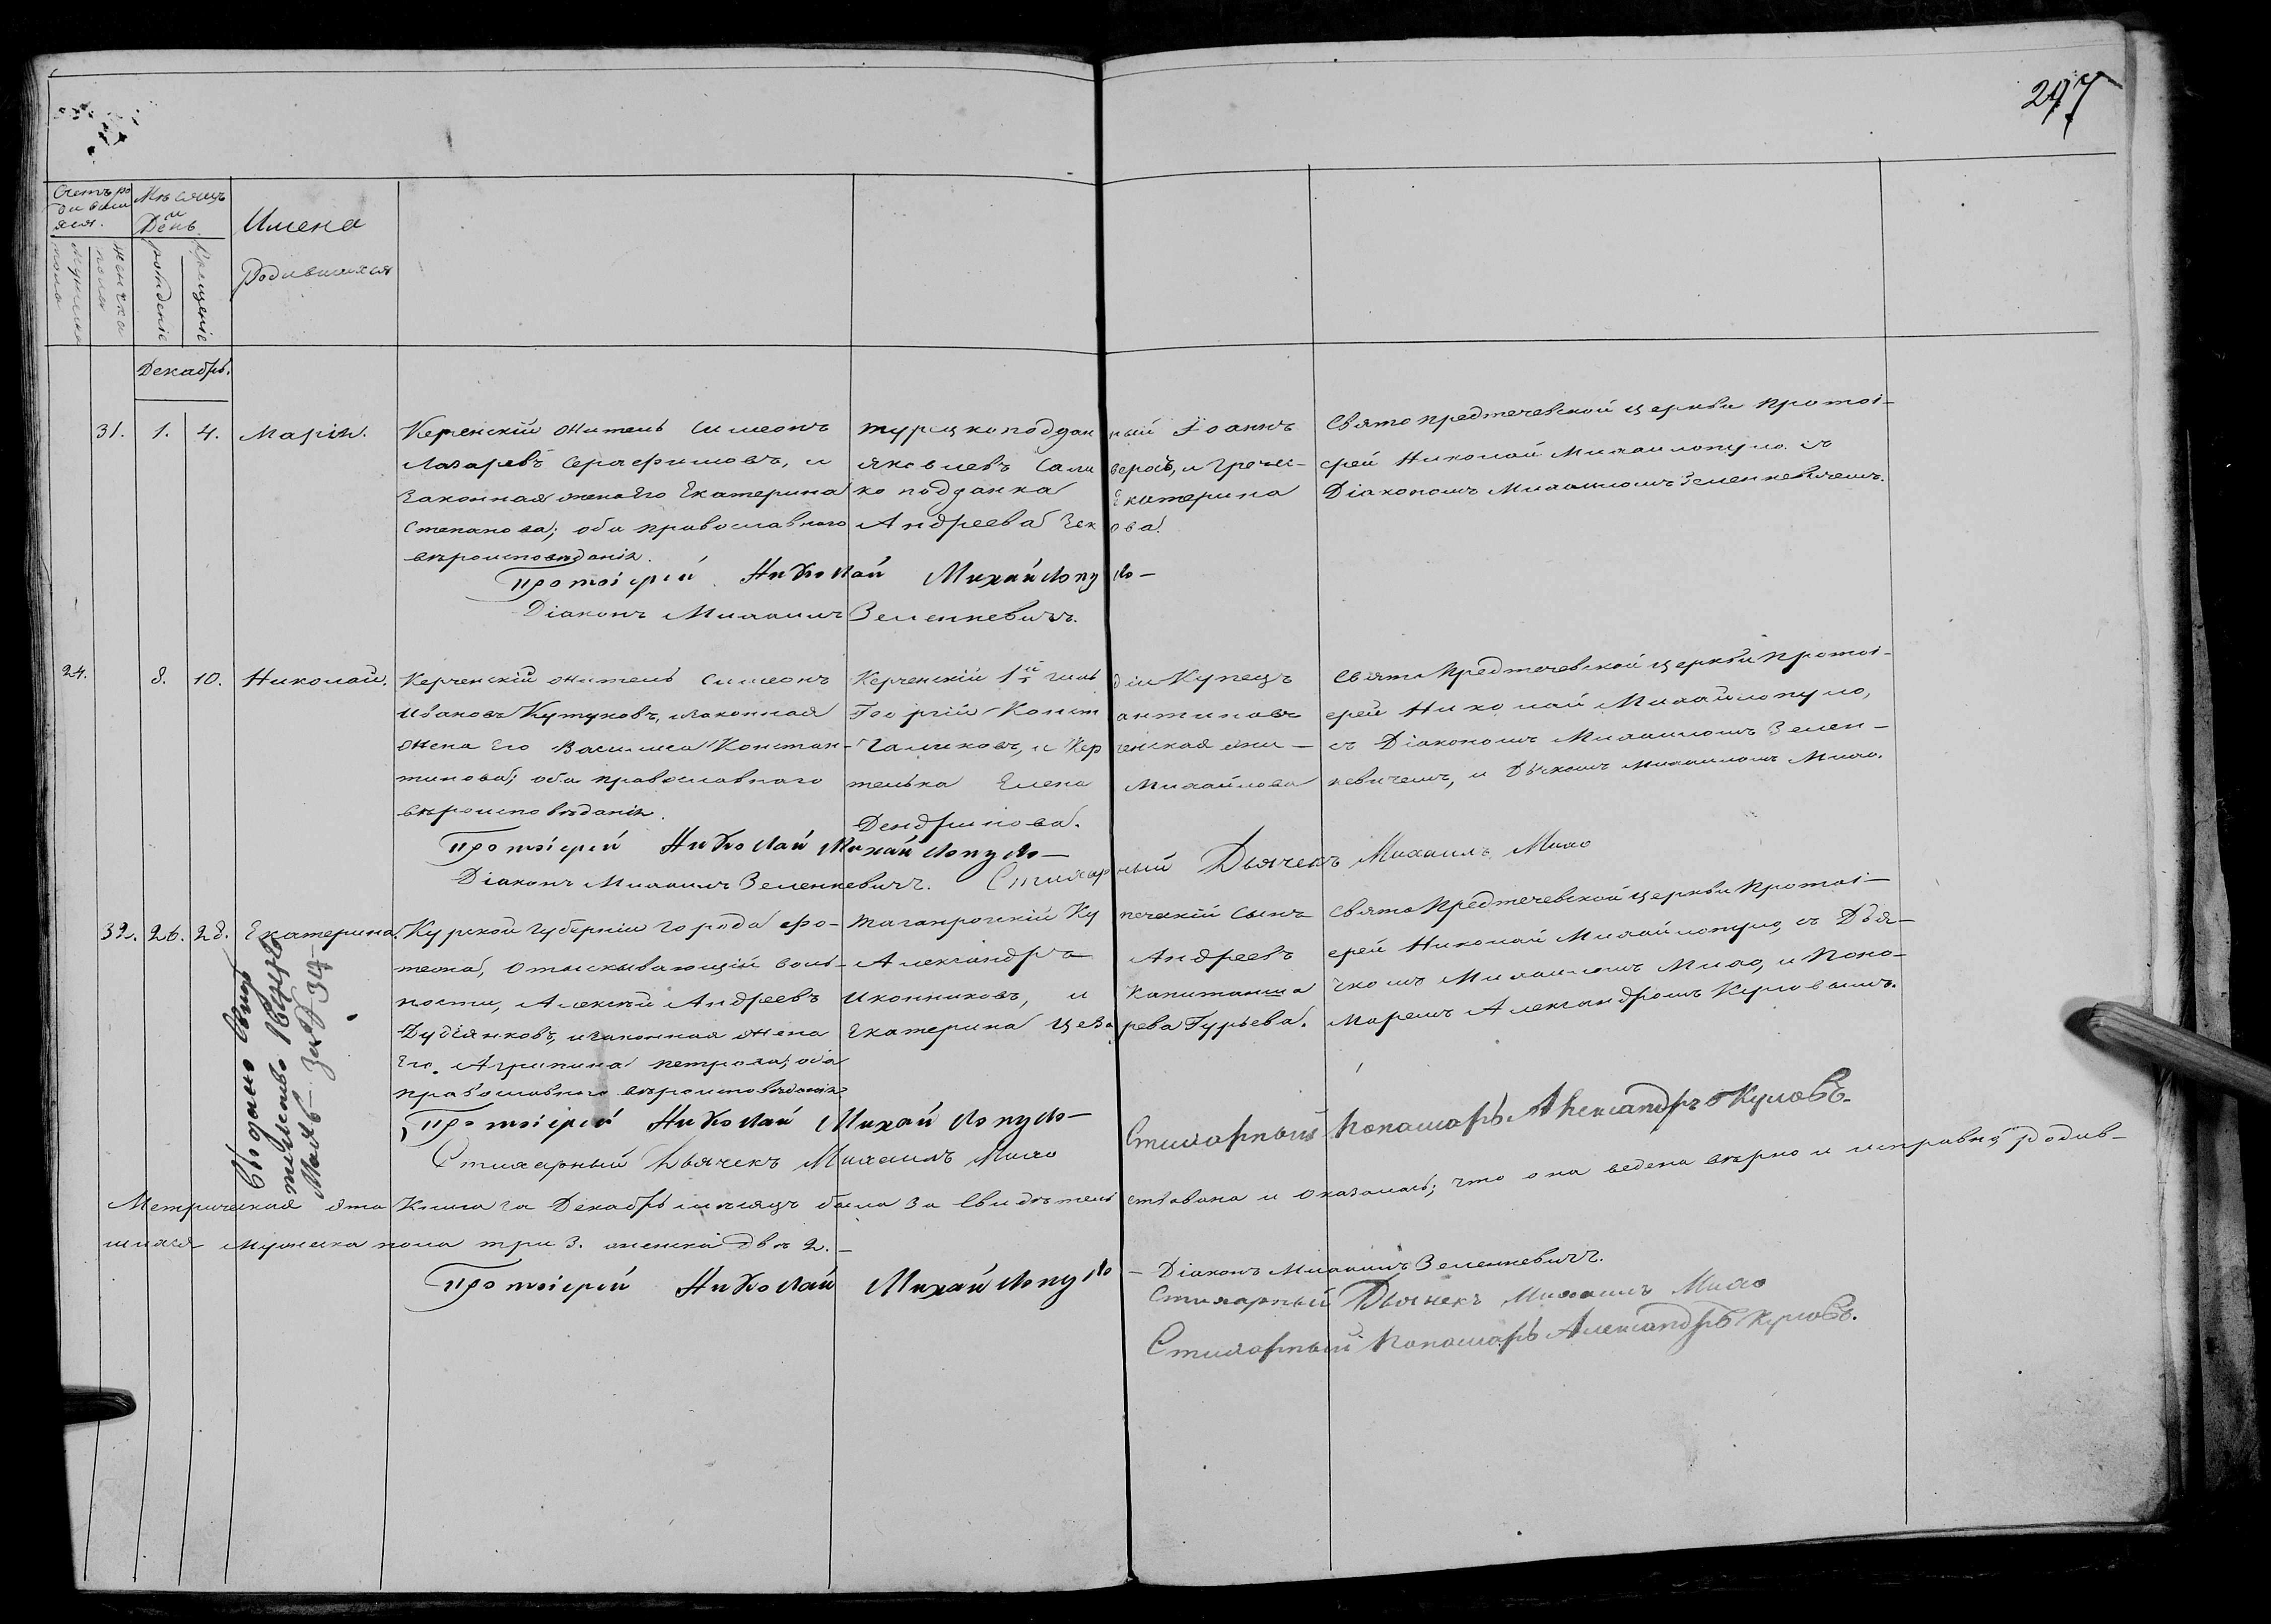 297
Счетъ ро
дившы
хся.
мужеска
пола
женска
пола
Мѣсяцъ
и
День.
рожденіе
Крещеніе
Имена
Родившихся
Декабрь.
31. 1. 4. Марія.
Керченскій житель Симеонъ
Лазаревъ Серафимовъ, и
законная жена его Екатерина
Степанова; оба православнаго
вѣроисповѣданія.
турецкоподданный Іоаннъ
Яковлевъ и Гречес-
ко подданка Екатерина
Андреева
Свято Предтечевской церкви Протоі-
ерей Николай Михайлопуло съ
Діакономъ Михаиломъ Зеленкевичемъ.
Протоіерей Николай Михайлопуло—
Діаконъ Михаилъ Зеленкевичъ.
24. 8. 10. Николай.
Керченскій житель Симеонъ
Ивановъ Кутуковъ, и законная
жена его Василиса Констан-
тинова; оба православнаго
вѣроисповѣданія.
Керченскій 1й гильдіи Купецъ
Георгій Константиновъ
Галиковъ, и Керченская жи-
телька Елена Михайлова
Дендринова.
Свято Предтечевской церкви Протоі-
ерей Николай Михайлопуло,
съ Діакономъ Михаиломъ Зелен-
кевичемъ, и Дьчкомъ Михаиломъ Михо.
Протоіерей Николай Михайлопуло—
Діаконъ Михаилъ Зеленкевичъ. Стихарный Дьячекъ Михаилъ Михо
32. 26. 28. Екатерина.
Курской губерніи города Фо-
тежа, отыскивающій воль-
ности, Алексѣй Андреевъ
и законная жена
его Агрипина Петрова; оба
православнаго вѣроисповѣданія
Таганрогскій Купеческій сынъ
Александръ Андреевъ
Иконниковъ, и Капитанша
Екатерина Гурьева.
Свято Предтечевской церкви Протоі-
ерей Николай Михайлопуло, съ Дья-
чкомъ Михаиломъ Михо, и Поно-
маремъ Александромъ Куловымъ.
Выдано свидѣ
тельство
Протоіерей Николай Михайлопуло—
Стихарный Дьячекъ Михаилъ Михо
Стихарный Понамарь Александръ Куловъ.
Метрическая эта Книга за Декабрь мѣсяцъ была засвидѣтельствована и оказалась; что она ведена вѣрно и исправно, родив-
шихся мужеска пола три 3. женска двѣ 2.—
Протоіерей Николай Михайлопуло—
Діаконъ Михаилъ Зеленкевичъ.
Стихарный Дьячекъ Михаилъ Михо
Стихарный Понамарь Александръ Куловъ.